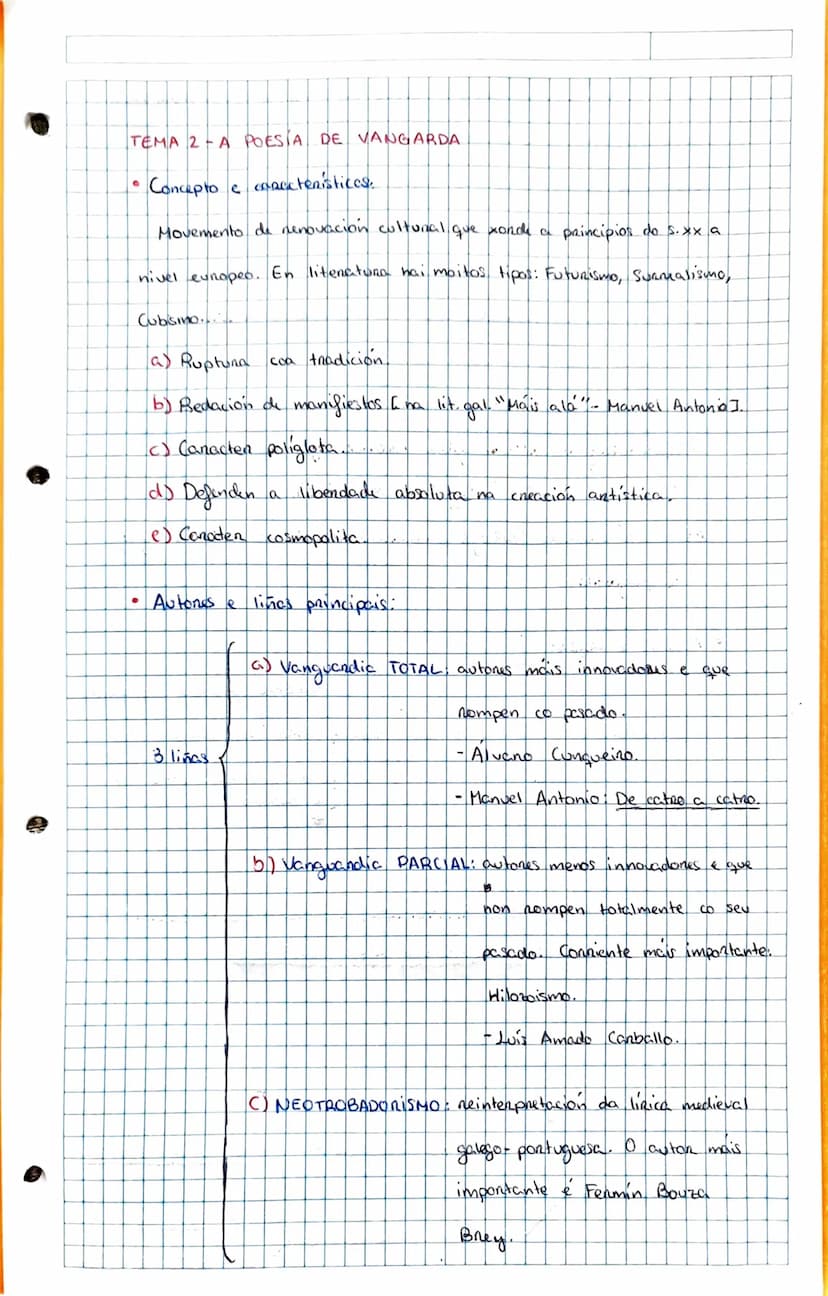 TEMA 2 - A POESÍA DE VANGARDA
• Concepto e características.
Movemento de renovación cultural que xorde a principios do s. XX a
nivel europeo. En literatura hai moitos tipos: Futurismo, Surrealismo,
Cubismo...
a) Ruptura coa tradición.
b) Redacion de manifiestos [na lit. gal. "Máis alá" - Manuel Antonio].
c) Caracter políglota.
d) Defenden a liberdade absoluta na creación artística.
e) Caracter cosmopolita.
• Autores e liñas principais:
a) Vanguardia TOTAL: autores máis innovadores e que
rompen co pasado.
3 liñas
- Álvaro Cunqueiro.
- Manuel Antonio: De catro a catro.
b) Vanguardia PARCIAL: autores menos innovadores e que
non rompen totalmente co seu
pasado. Corriente máis importante:
Hilozoismo.
- Luís Amado Carballo.
C) NEOTROBADORISMO: reinterpretación da lírica medieval
galego-portuguesa. O autor máis
importante é Fermín Bouza
Brey.